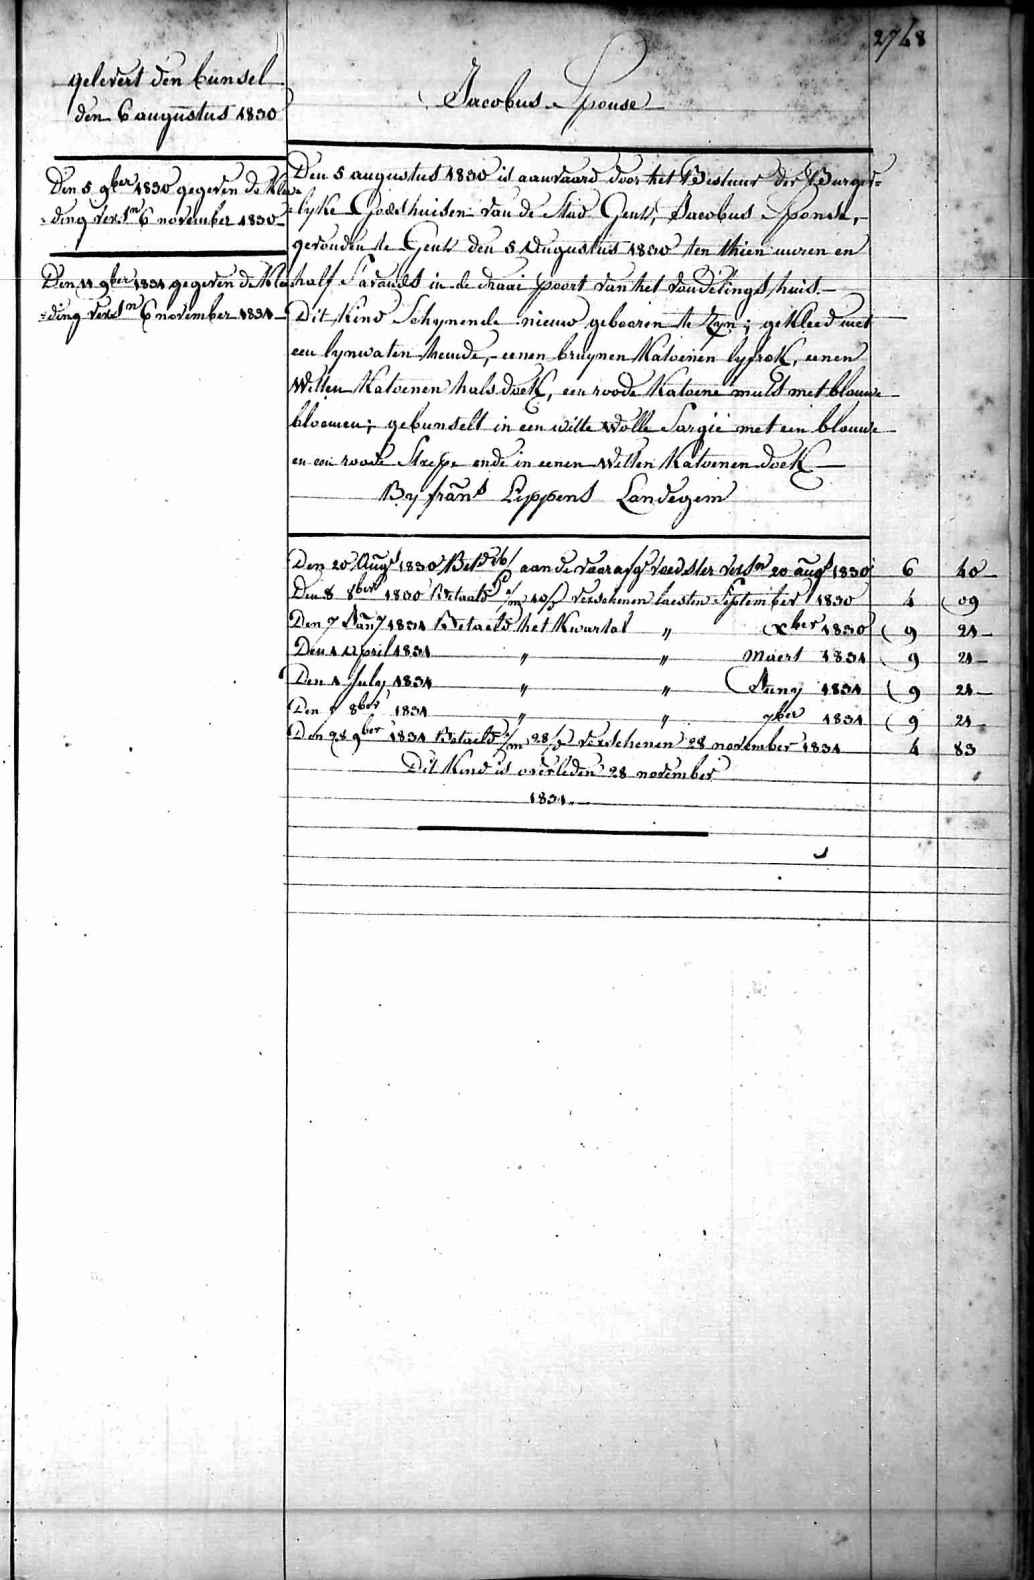 2768
gelevert den bunsel
den 6 augustus 1830
Jacobus Sponse
Den 5 9ber 1830 gegeven de Klee=
=ding versn 6 november 1830
Den 11 9ber 1831 gegeven de Klee
=ding versn 6 november 1831
Den 5 augustus 1830 is aanvaard door het Bestuur der Burger=
=lyke Godshuisen van de Stad Gent, Jacobus Sponse,
gevonden te Gent den 5 Augustus 1830 ten thien uuren en
half s'avonds in de draai poort van het vondelings huis.
Dit Kind Schynende nieuw gebooren te Zyn; gekleed met
een lynwaten hemde, eenen bruynen Katoenen lyfrok, eenen
Witten Katoenen hals doek, een roode Katoene muts met blauwe
bloemen; gebunselt in een witte Wolle Sargie met een blauwe
en een roode Strepe ende in eenen Witten Katoenen doek
By frans Lippens Landegem
Den 20 Augt 1830 Betd aan de voedster versn 20 augt 1830 6 40
Den 8 8ber 1830 Betaeld verschenen laesten September 1830 4 09
Den 7 Jany 1831 Betaeld het Kwartal " Xber 1830 9 21
Den 1 April 1831 " " Maert 1831 9 21
Den 1 July 1831 " " Juny 1831 9 21
Den 1 8ber 1831 " " 7ber 1831 9 21
Den 28 9ber 1831 Betaeld verschenen 28 november 1831 4 83
Dit Kind is overleden 28 november
1831